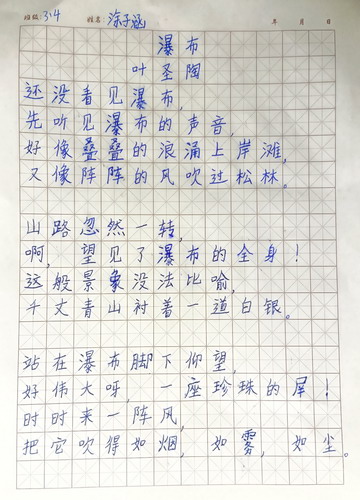 班级:3.4 姓名:涂子涵 年 月 日
瀑布
叶圣陶
还没看见瀑布,
先听见瀑布的声音,
好像叠叠的浪涌上岸滩,
又像阵阵的风吹过松林。
山路忽然一转,
啊,望见了瀑布的全身!
这般景象没法比喻,
千丈青山衬着一道白银。
站在瀑布脚下仰望,
好伟大呀,一座珍珠的屏!
时时来一阵风,
把它吹得如烟,如雾,如尘。